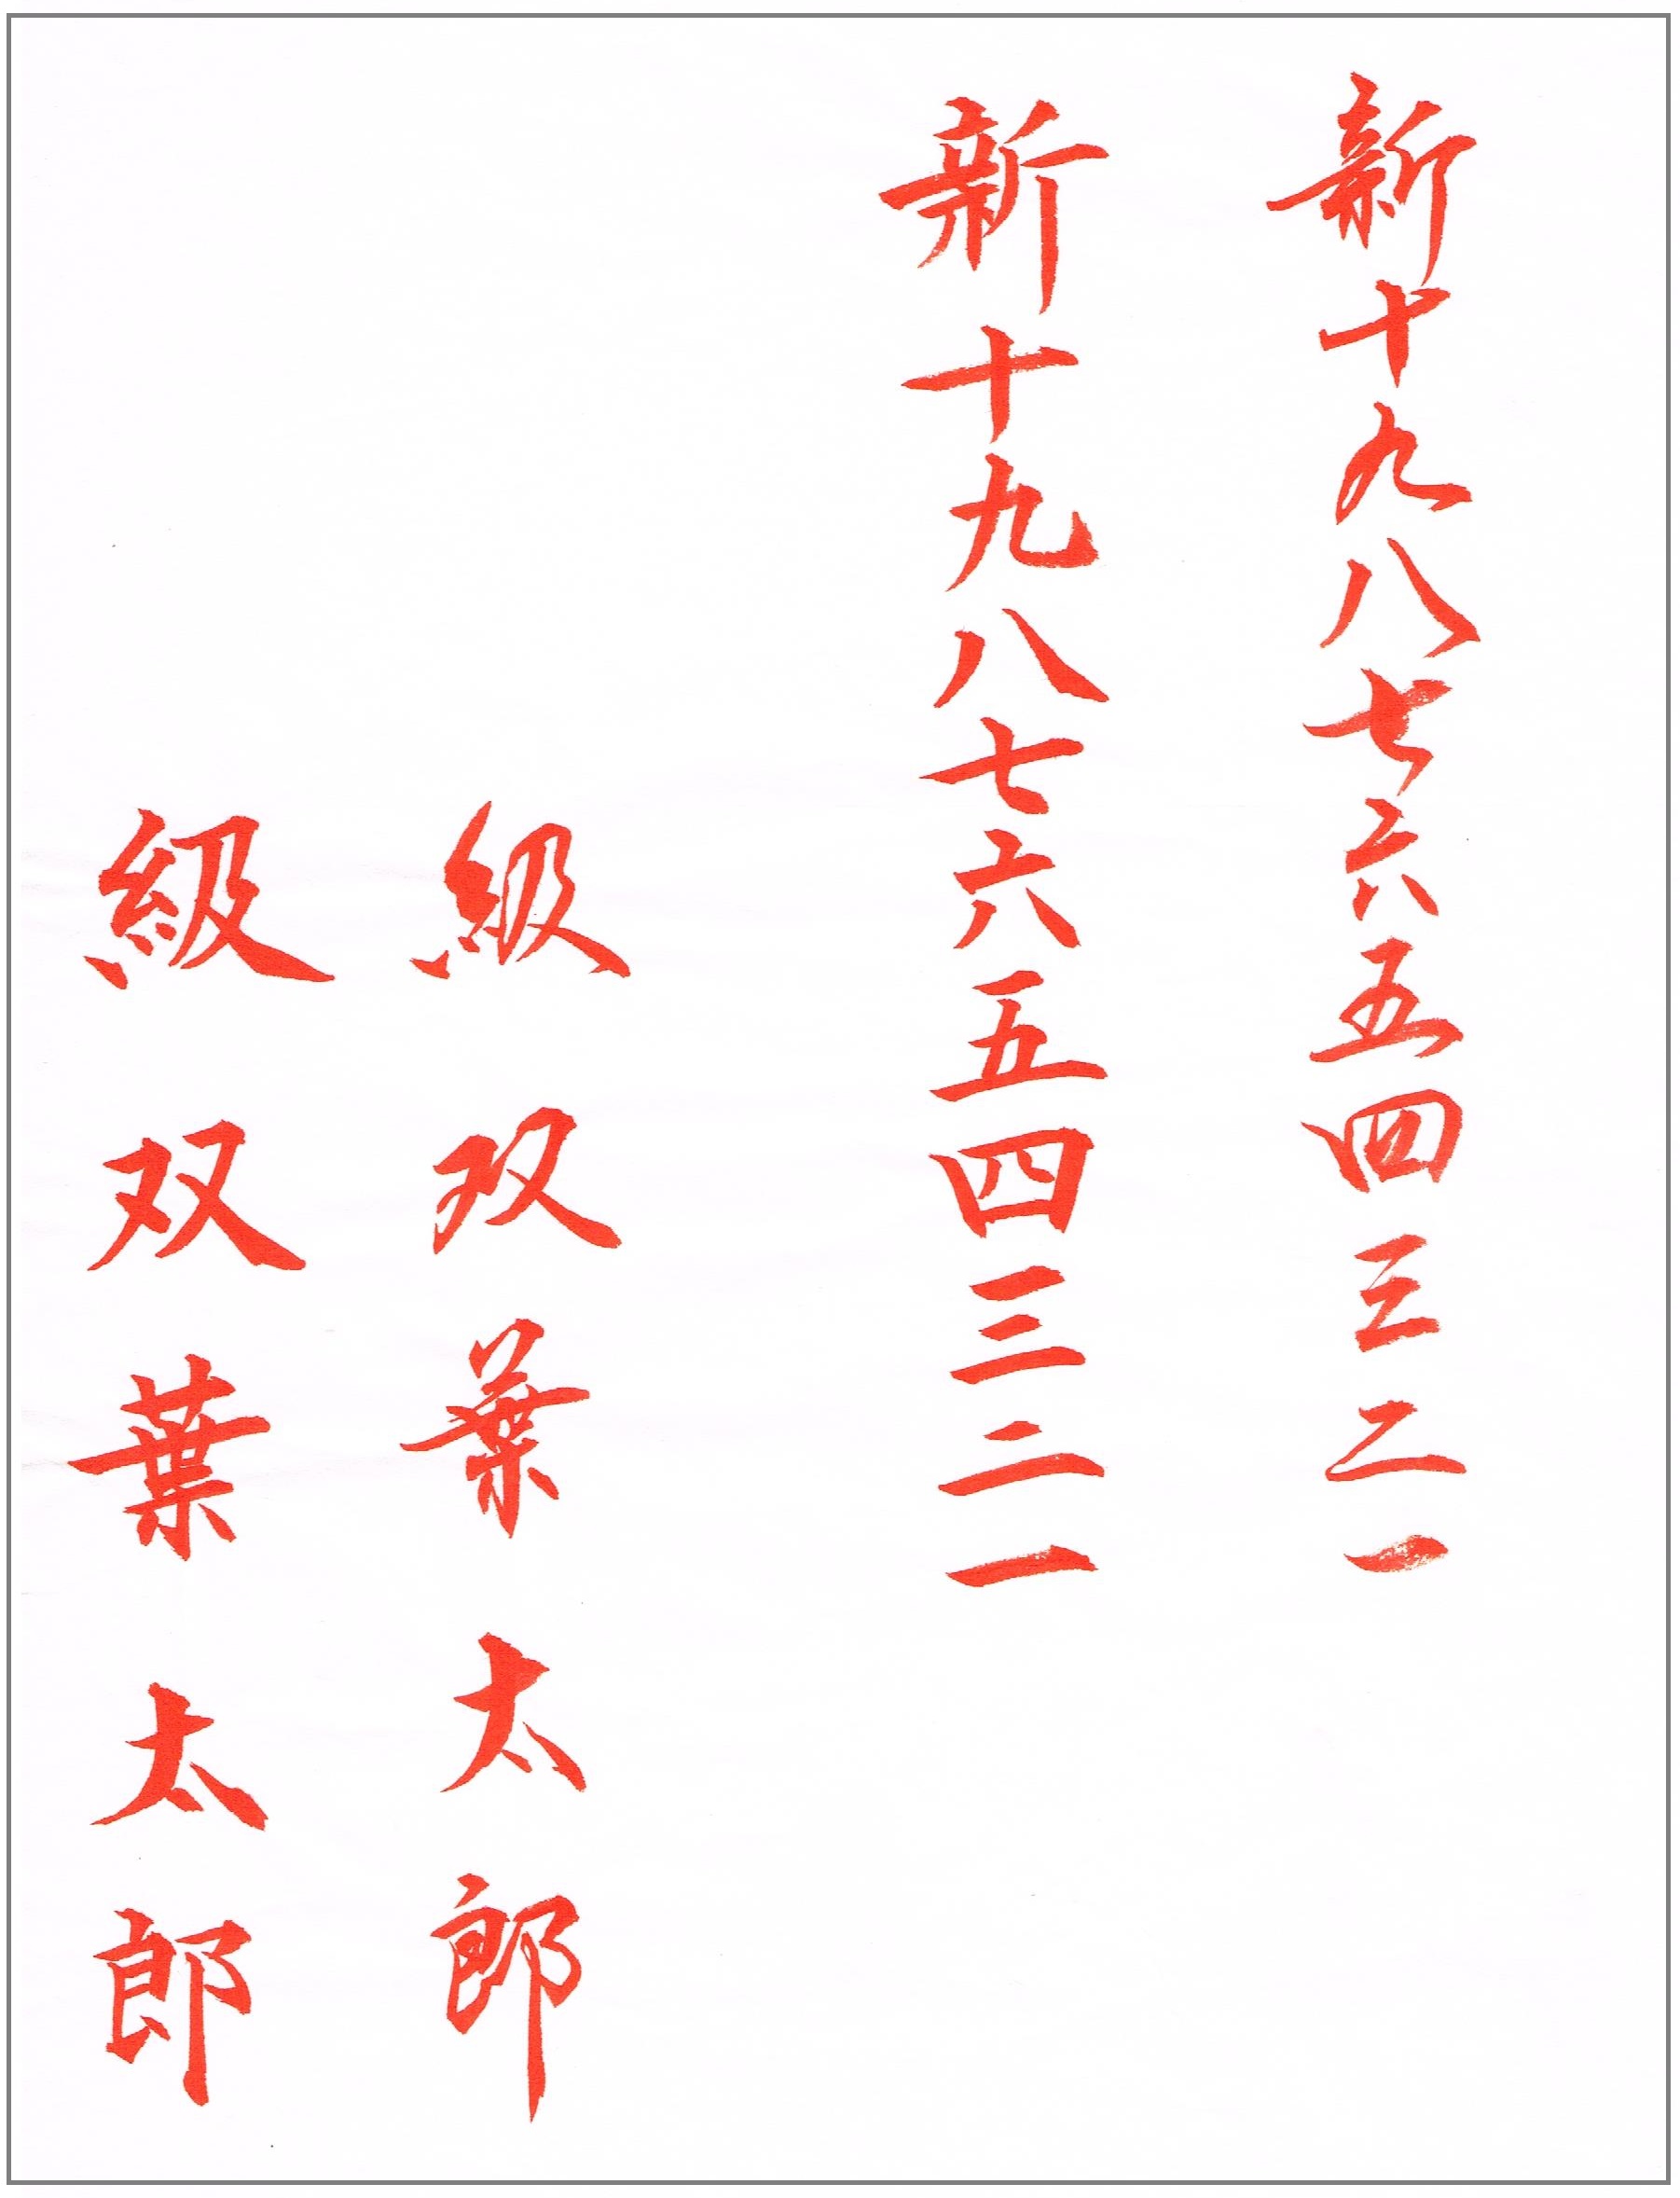 新十九八七六五四三二一
新十九八七六五四三二一
級双葉太郎
級双葉太郎